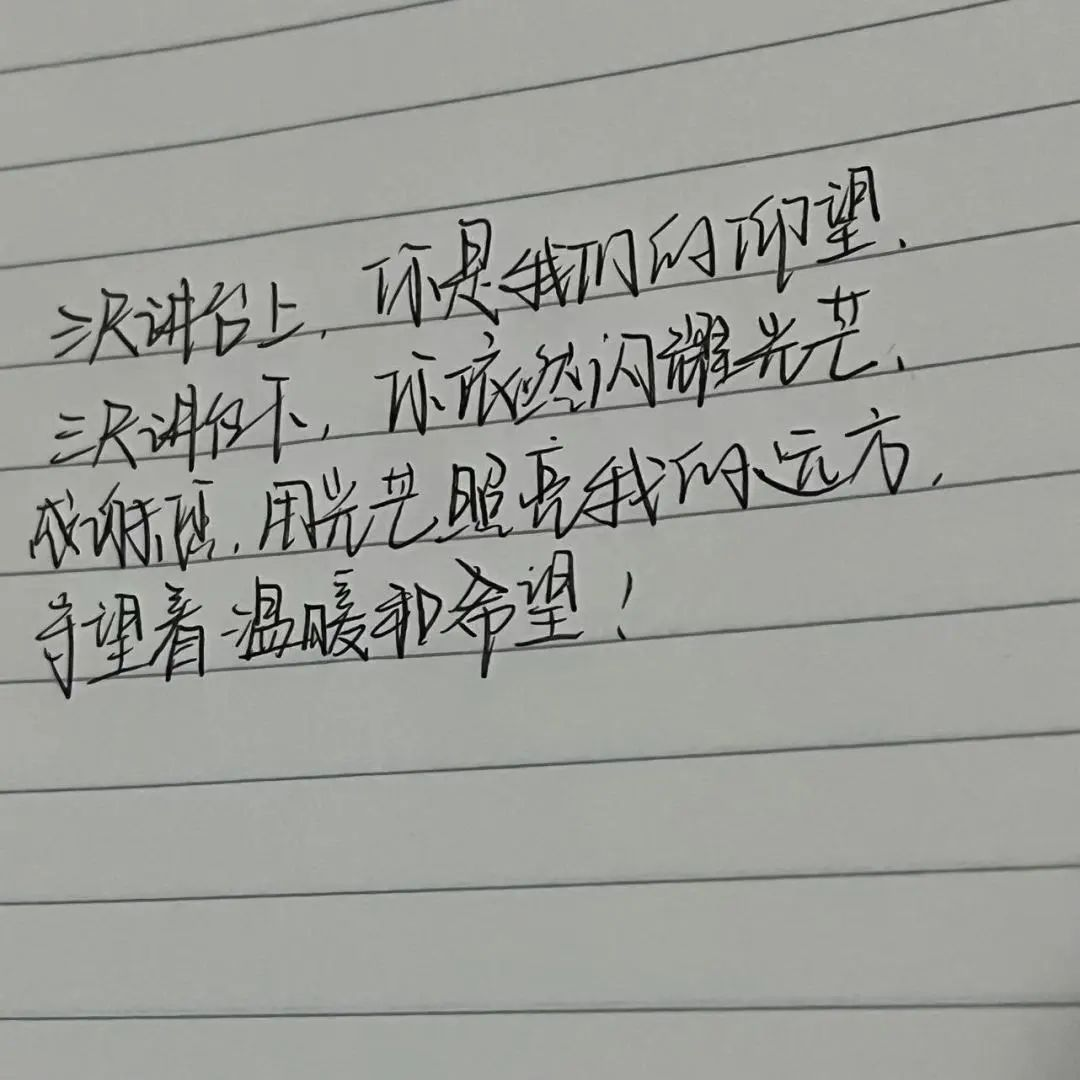 三尺讲台上，你是我们的仰望，
三尺讲台下，你依然闪耀光芒，
感谢恩，用光芒照亮我的远方，
守望着温暖和希望！